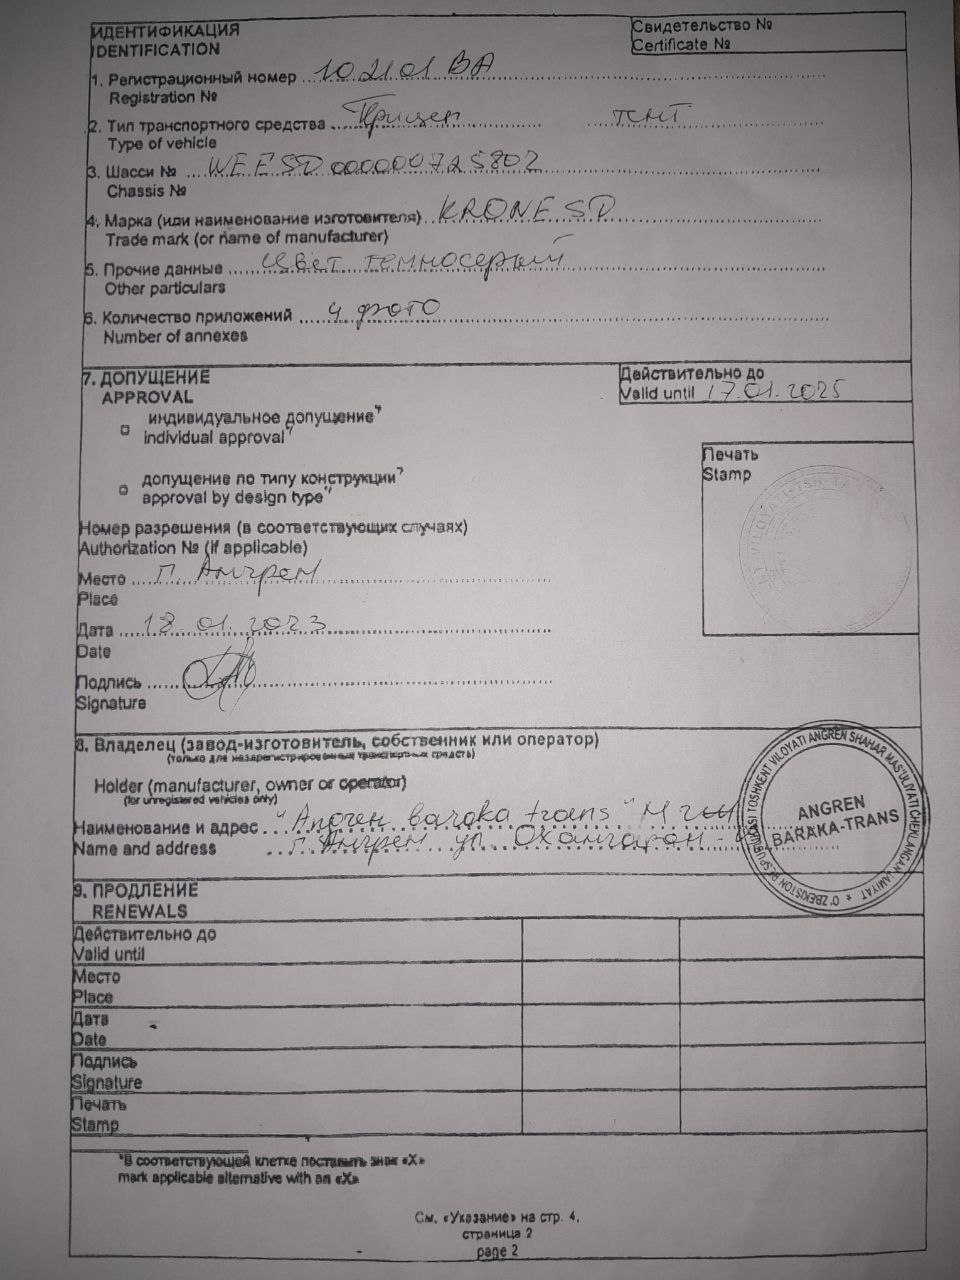 ИДЕНТИФИКАЦИЯ
IDENTIFICATION
Свидетельство №
Certificate №
1. Регистрационный номер 102101 BA
Registration №
2. Тип транспортного средства Прицеп тент
Type of vehicle
3. Шасси № WEESD000000725802
Chassis №
4. Марка (или наименование изготовителя) KRONE SD
Trade mark (or name of manufacturer)
5. Прочие данные Цвет темносерый
Other particulars
6. Количество приложений 4 фото
Number of annexes
7. ДОПУЩЕНИЕ
APPROVAL
Действительно до
Valid until 17.01.2025
индивидуальное допущение*
individual approval*
Печать
Stamp
допущение по типу конструкции*
approval by design type*
Номер разрешения (в соответствующих случаях)
Authorization № (if applicable)
Место г. Ангрен
Place
Дата 18.01.2023
Date
Подпись
Signature
8. Владелец (завод-изготовитель, собственник или оператор)
(только для незарегистрированных транспортных средств)
Holder (manufacturer, owner or operator)
(for unregistered vehicles only)
Наименование и адрес "Ангрен baraka trans" МЧЖ
Name and address г. Ангрен ул. Охангаран
O'ZBEKISTON RESPUBLIKASI TOSHKENT VILOYATI ANGREN SHAHAR MAS'ULIYATI CHEKLANGAN JAMIYAT *
ANGREN
BARAKA-TRANS
9. ПРОДЛЕНИЕ
RENEWALS
Действительно до
Valid until
Место
Place
Дата
Date
Подпись
Signature
Печать
Stamp
*В соответствующей клетке поставить знак «X»
mark applicable alternative with an «X»
См. «Указание» на стр. 4.
страница 2
page 2